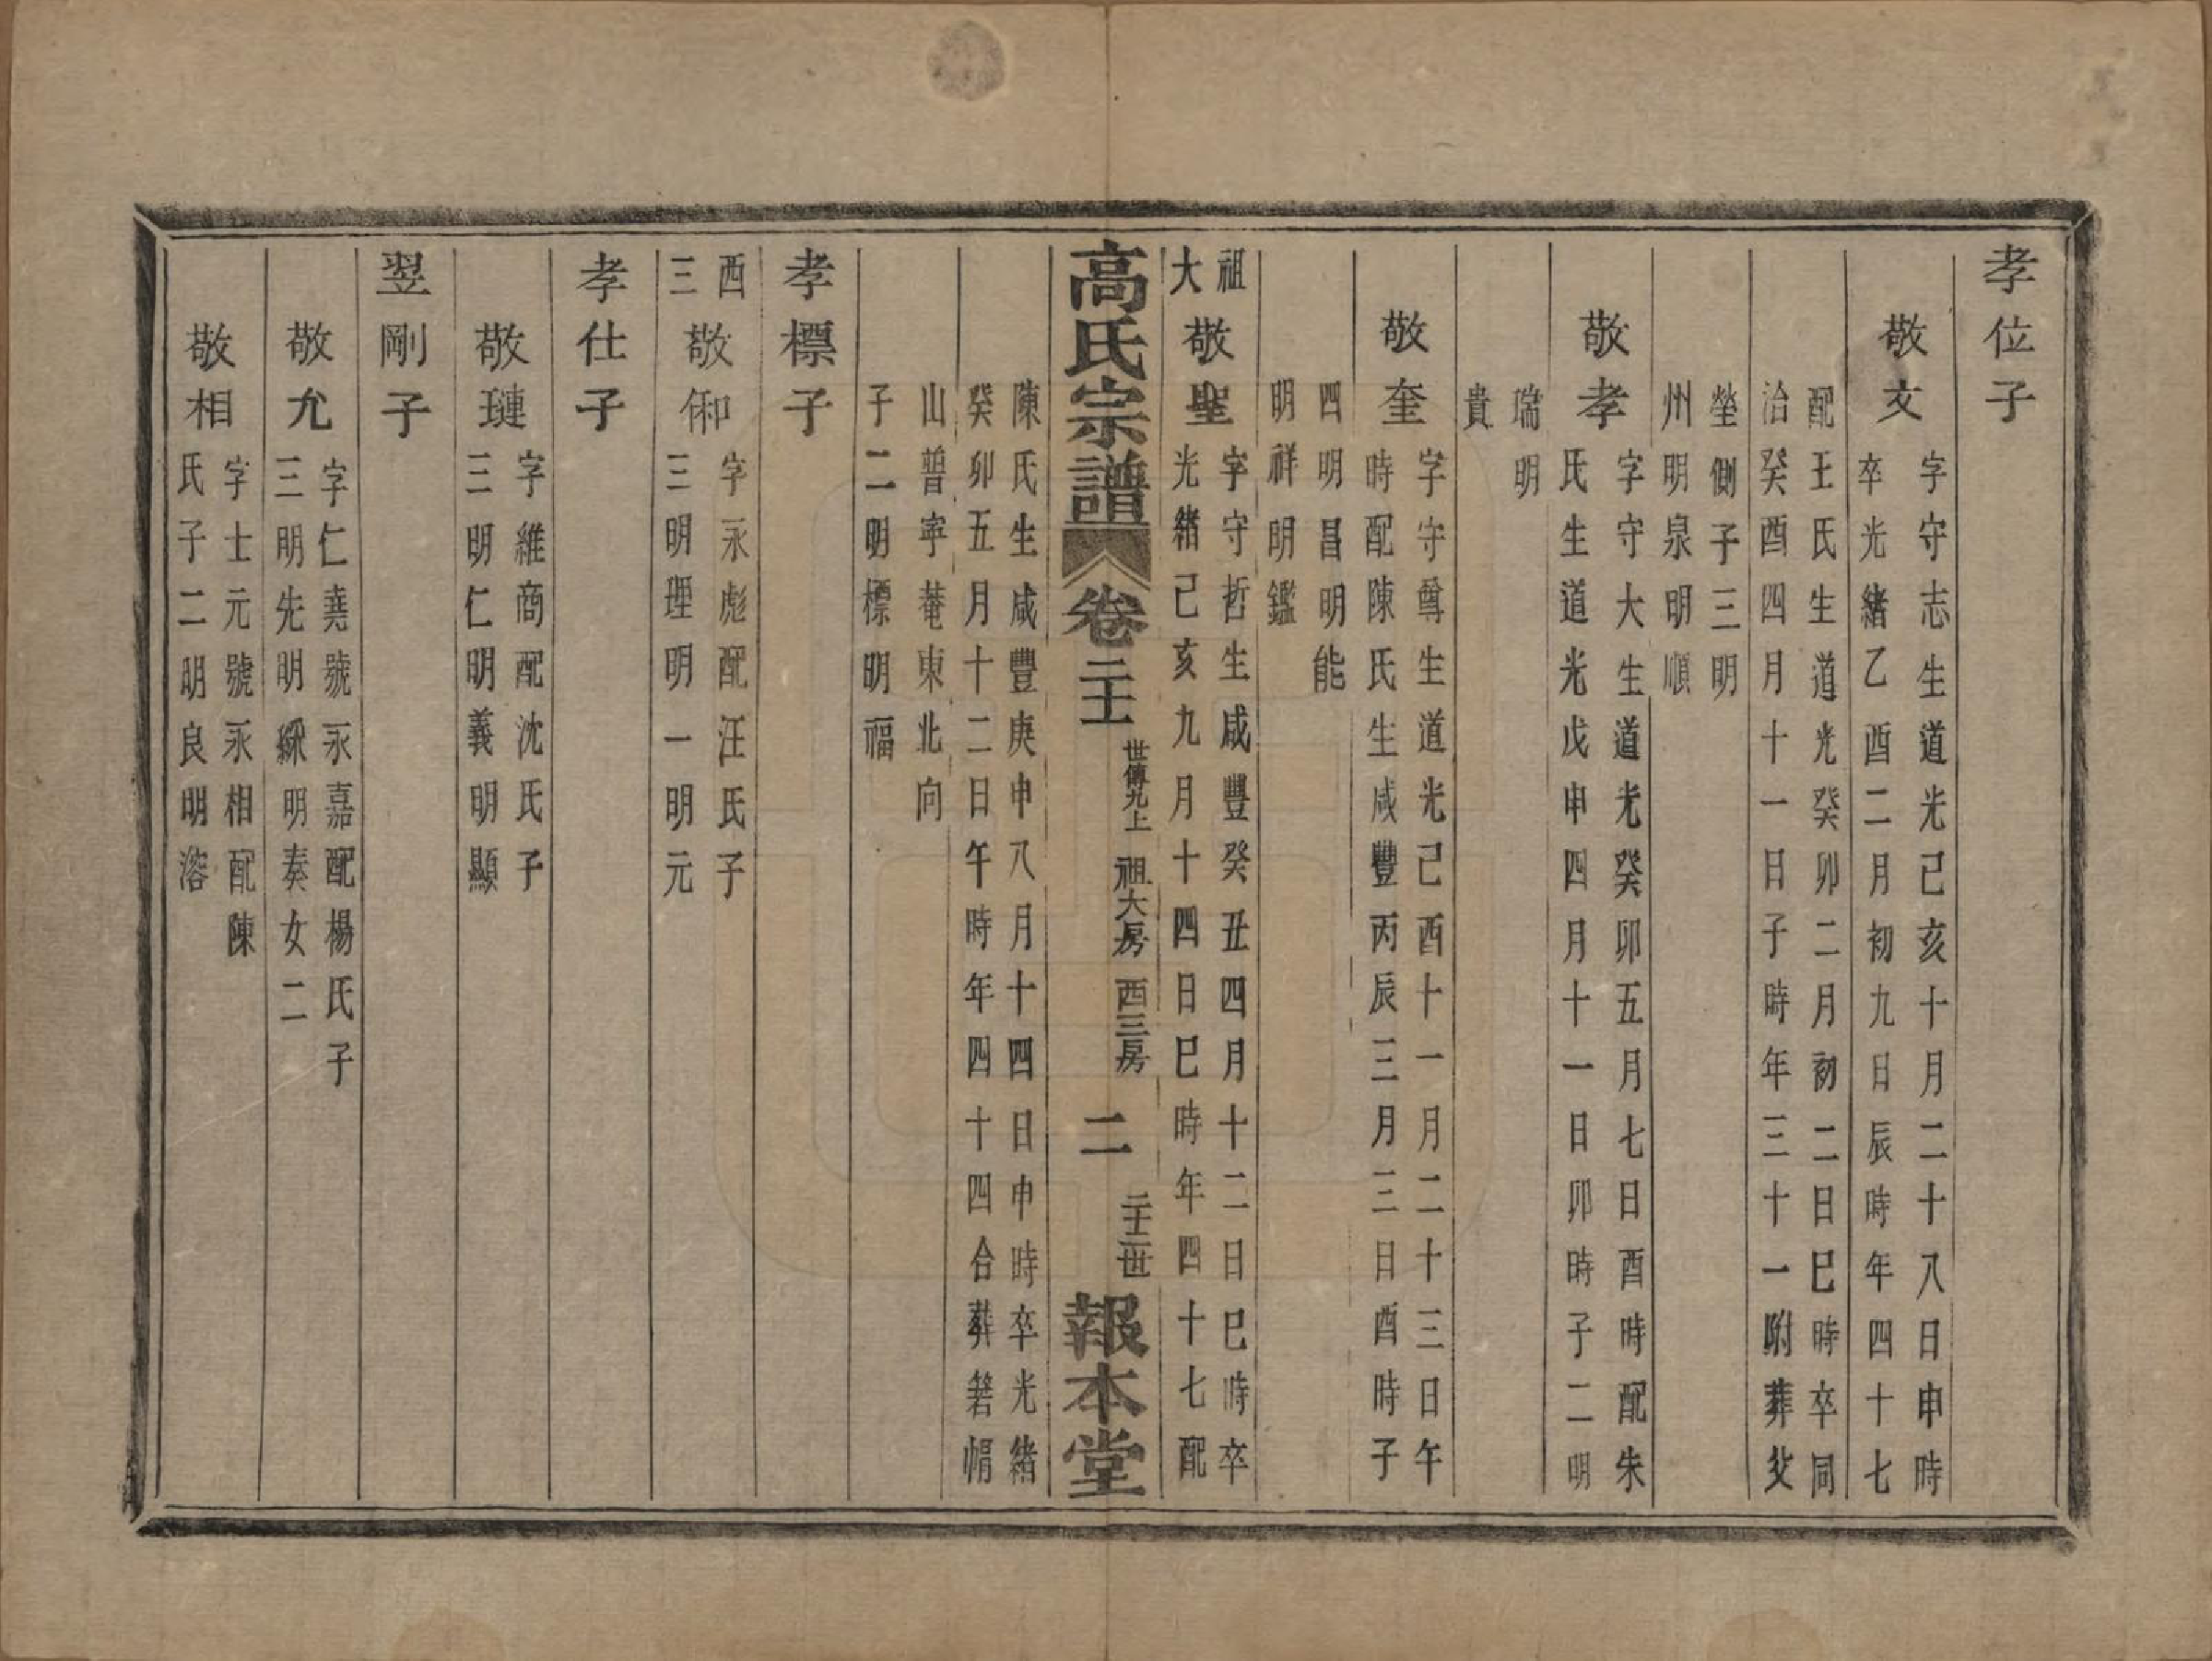 孝位子
敬文
字守志生道光己亥十月二十八日申時
卒光緒乙酉二月初九日辰時年四十七
配王氏生道光癸卯二月初二日巳時卒同
治癸酉四月十一日子時年三十一附葬父
塋側子三明
州明泉明順
敬孝
字守大生道光癸卯五月七日酉時配朱
氏生道光戊申四月十一日卯時子二明
瑞明
貴
敬奎
字守尊生道光己酉十一月二十三日午
時配陳氏生咸豐丙辰三月三日酉時子
四明昌明能
明祥明鑑
祖大
敬聖
字守哲生咸豐癸丑四月十二日巳時卒
光緒己亥九月十四日巳時年四十七配
高氏宗譜 卷二十一 世傳九上 祖大房 西三房 二 二十三世 報本堂
陳氏生咸豐庚申八月十四日申時卒光緒
癸卯五月十二日午時年四十四合葬箬帽
山普寧菴東北向
子二明標明福
孝標子
西三
敬和
字永彪配汪氏子
三明理明一明元
孝仕子
敬璉
字維商配沈氏子
三明仁明義明顯
翌剛子
敬允
字仁堯號永嘉配楊氏子
三明先明綵明奏女二
敬相
字士元號永相配陳
氏子二明良明溶